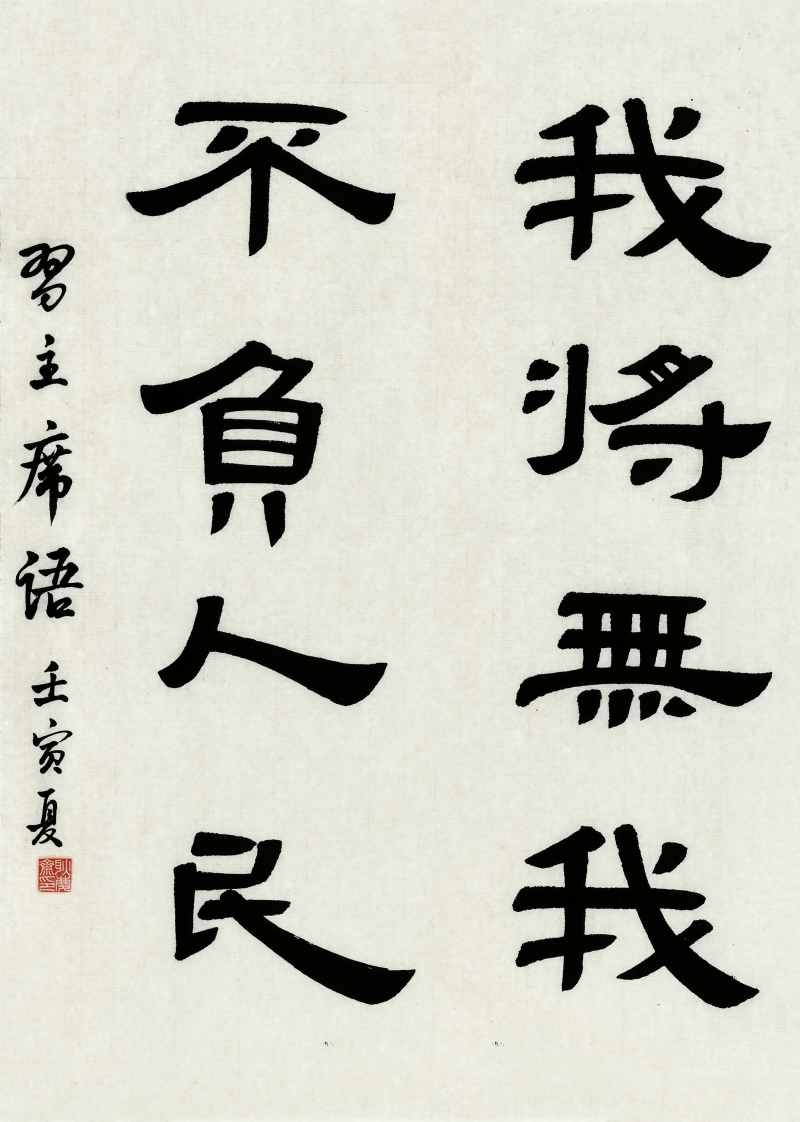 我将無我
不負人民
習主席语 壬寅夏